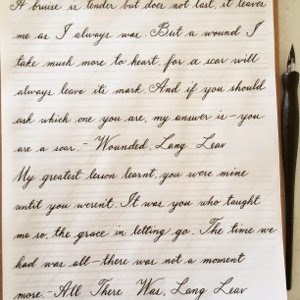 A bruise is tender but does not last, it leaves
me as I always was. But a wound I
take much more to heart, for a scar will
always leave its mark. And if you should
ask which one you are, my answer is-you
are a scar. - Wounded, Lang Leav
My greatest lesson learnt, you were mine
until you weren't. It was you who taught
me so, the grace in letting go. The time we
had was all-there was not a moment
more.-All There Was, Lang Leav